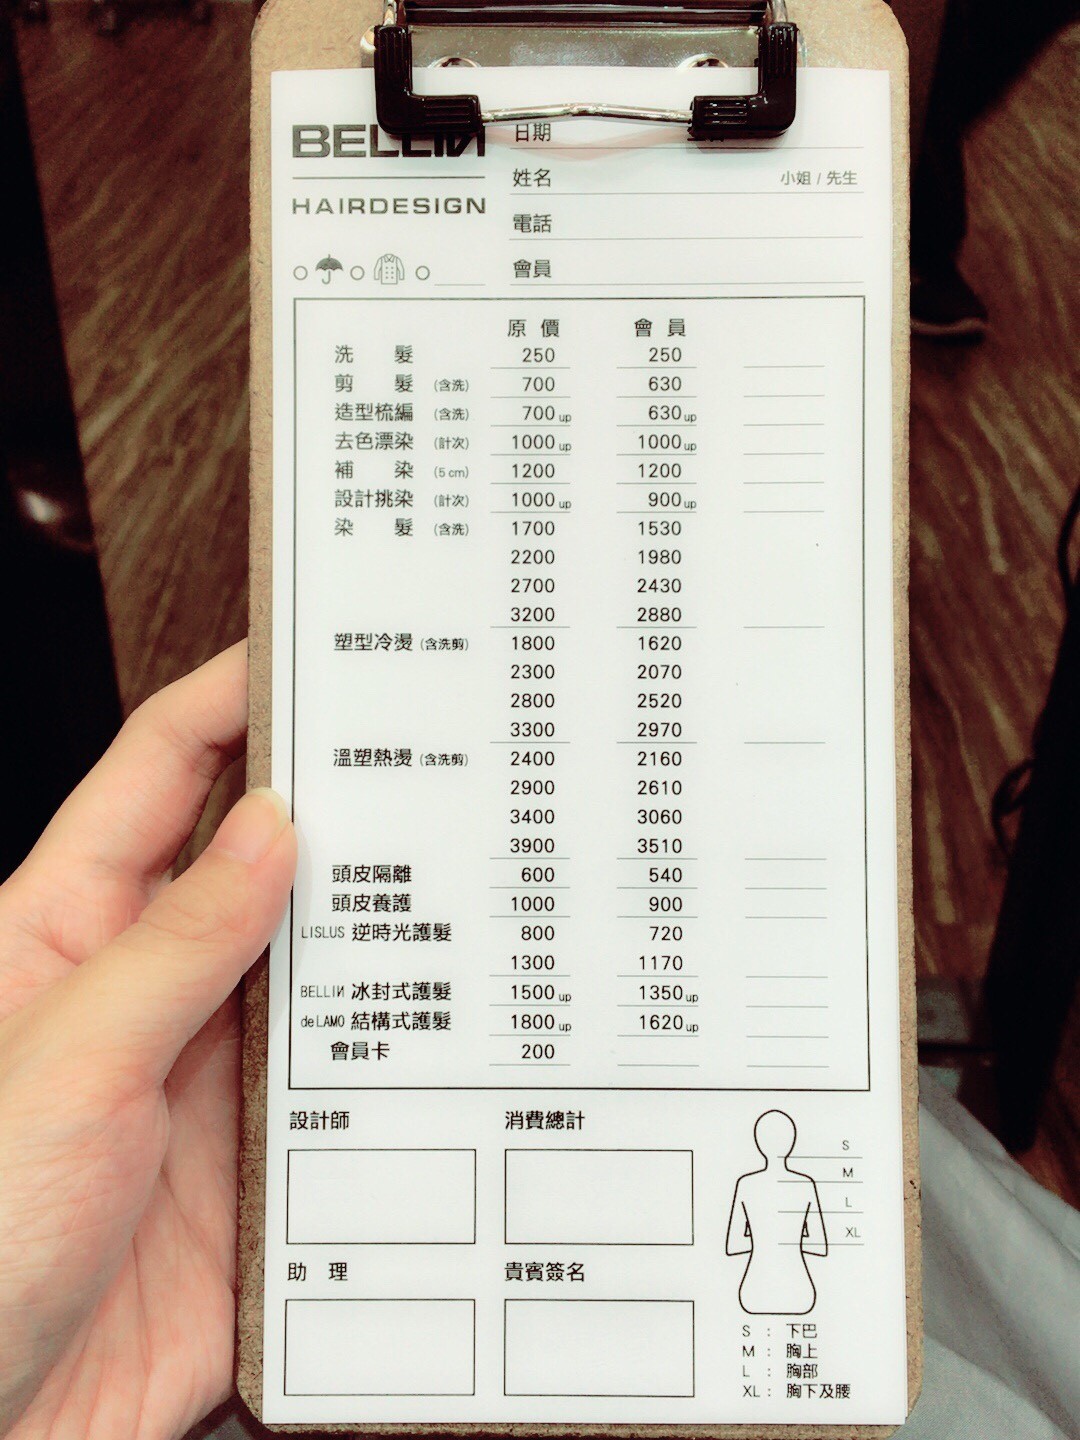 BELLIN
日期
HAIRDESIGN
姓名 小姐 / 先生
電話
會員
原價 會員
洗髮 250 250
剪髮 (含洗) 700 630
造型梳編 (含洗) 700up 630up
去色漂染 (計次) 1000up 1000up
補染 (5 cm) 1200 1200
設計挑染 (計次) 1000up 900up
染髮 (含洗) 1700 1530
2200 1980
2700 2430
3200 2880
塑型冷燙 (含洗剪) 1800 1620
2300 2070
2800 2520
3300 2970
溫塑熱燙 (含洗剪) 2400 2160
2900 2610
3400 3060
3900 3510
頭皮隔離 600 540
頭皮養護 1000 900
LISLUS 逆時光護髮 800 720
1300 1170
BELLIN 冰封式護髮 1500up 1350up
deLAMO 結構式護髮 1800up 1620up
會員卡 200
設計師 消費總計
S
M
L
XL
助理 貴賓簽名
S : 下巴
M : 胸上
L : 胸部
XL : 胸下及腰